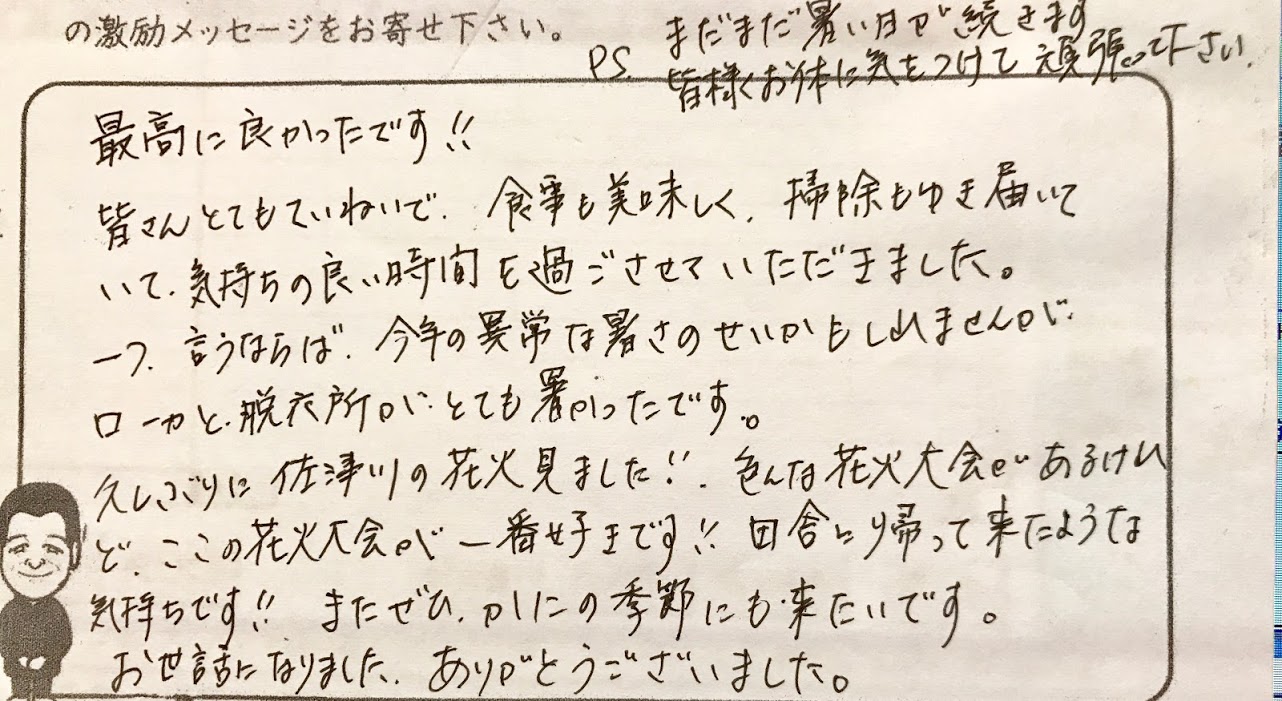 の激励メッセージをお寄せ下さい。
PS. まだまだ暑い日が続きます
皆様くお体に気をつけて頑張って下さい.
最高に良かったです!!
皆さんとてもていねいで、食事も美味しく、掃除もゆき届いて
いて、気持ちの良い時間を過ごさせていただきました。
一つ、言うならば、今年の異常な暑さのせいかもしれませんが、
ローカと、脱衣所が、とても暑かったです。
久しぶりに佐津川の花火見ました!! 色んな花火大会があるけれ
ど、ここの花火大会が一番好きです!! 田舎に帰って来たような
気持ちです!! またぜひ、かにの季節にも来たいです。
お世話になりました、ありがとうございました。